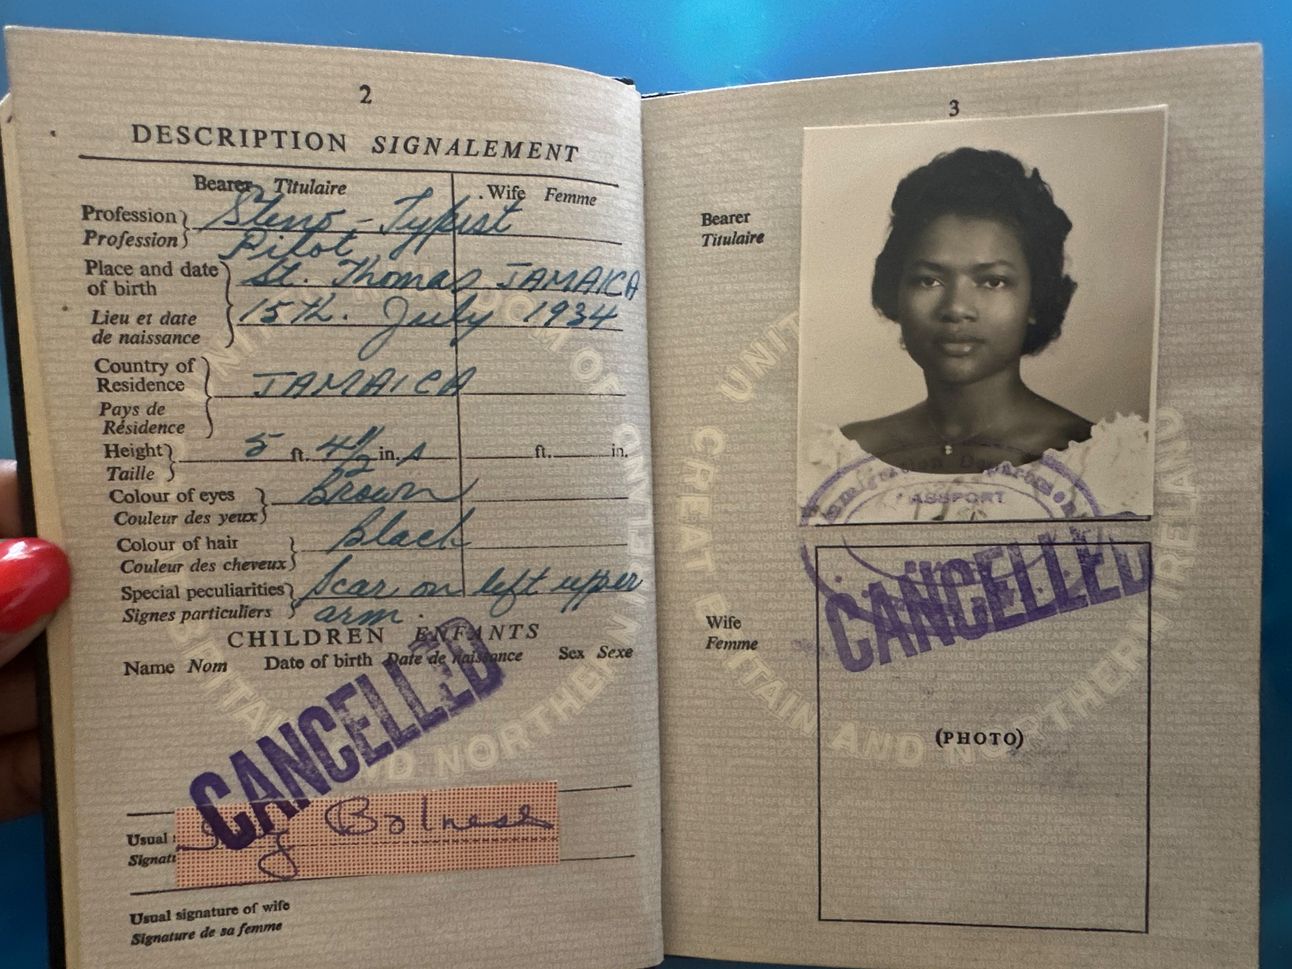 2
DESCRIPTION SIGNALEMENT
Bearer Titulaire
Wife Femme
Profession Steno-Typist
Profession Pilot
Place and date of birth St. Thomas JAMAICA
Lieu et date de naissance 15th. July 1934
Country of Residence JAMAICA
Pays de Résidence
Height 5 ft. 4 1/2 in. s ft. in.
Taille
Colour of eyes Brown
Couleur des yeux
Colour of hair Black
Couleur des cheveux
Special peculiarities Scar on left upper
Signes particuliers arm.
CHILDREN ENFANTS
Name Nom Date of birth Date de naissance Sex Sexe
CANCELLED
Usual
Signat
Usual signature of wife
Signature de sa femme
UNITED KINGDOM OF GREAT BRITAIN AND NORTHERN IRELAND
3
Bearer
Titulaire
Immigration Department
PASSPORT
CANCELLED
Wife
Femme
(PHOTO)
UNITED KINGDOM OF GREAT BRITAIN AND NORTHERN IRELAND